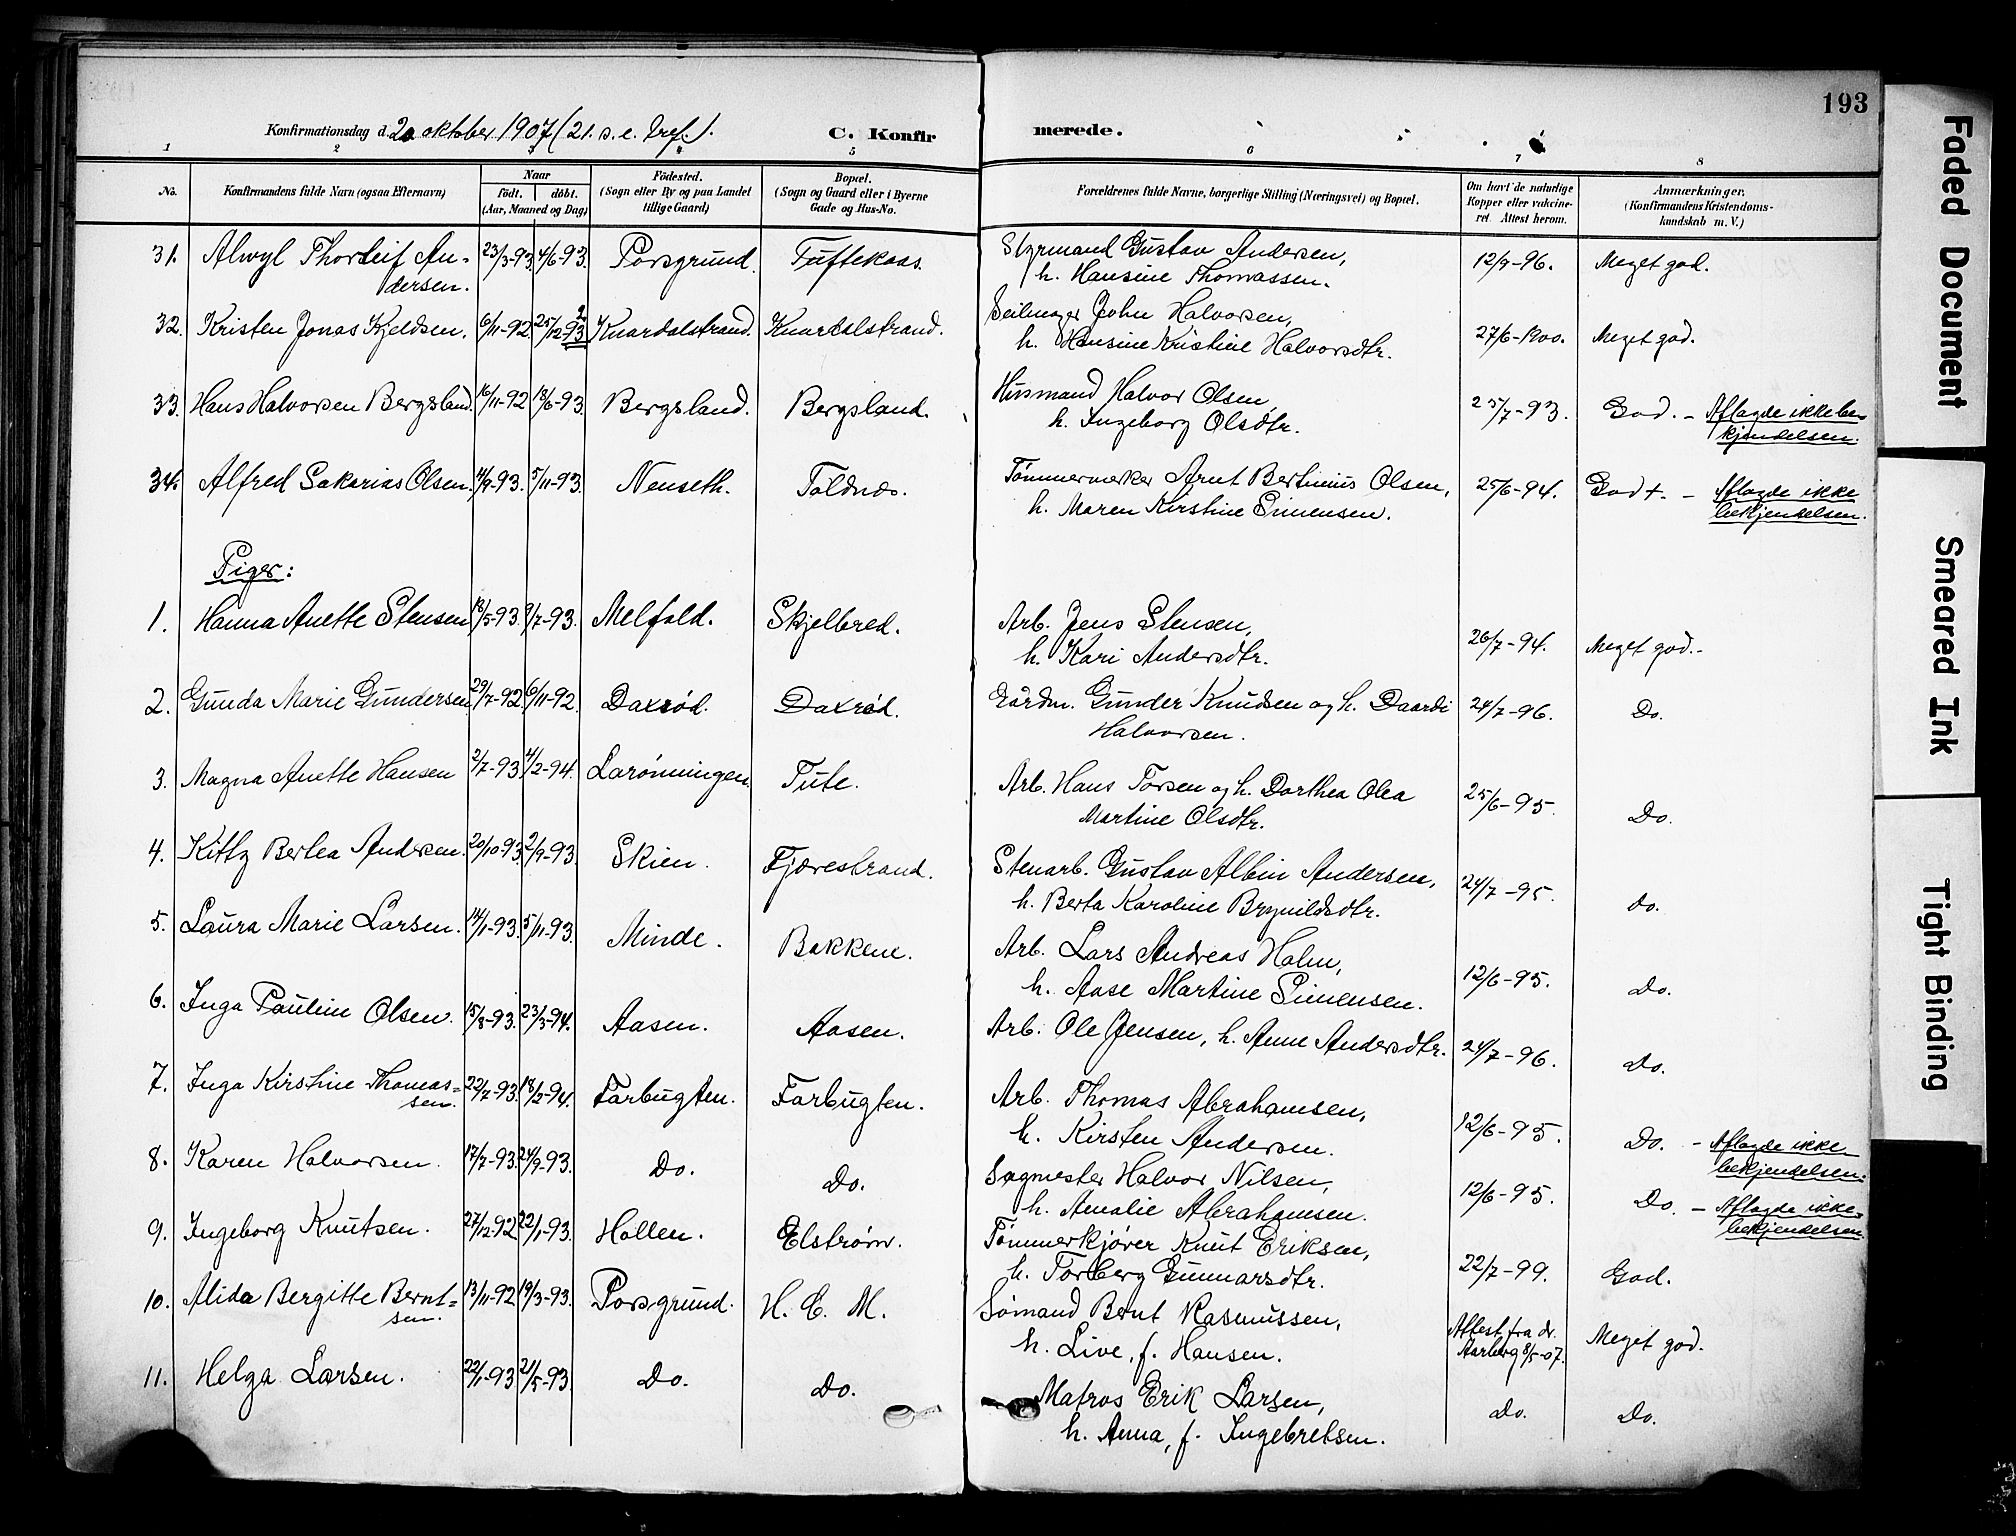 193
Konfirmationsdag d. 20 oktober 1907 (21. s. e. tref.). C. Konfirmerede.
1 2 3 4 5 6 7 8
No. Konfirmandens fulde Navn (ogsaa Efternavn) Naar født. døbt. (Aar, Maaned og Dag) Fødested. (Sogn eller By og paa Landet tillige Gaard) Bopæl. (Sogn og Gaard eller i Byerne Gade og Hus-No. Forældrenes fulde Navne, borgerlige Stilling (Næringsvei) og Bopæl. Om havt de naturlige Kopper eller vaccineret. Attest herom. Anmærkninger. (Konfirmandens Kristendomskundskab m. V.)
31. Alwyl Thorleif An- 23/3-93. 4/6-93. Porsgrund. Tuftekaas. Styrmand Gustav Andersen, 12/9-96. Meget god.
dersen. h. Hansine Thomassen.
32. Kristen Jonas Kjeldsen. 6/11-92. 25/12-93 2 Knardalstrand. Knardalstrand. Seilmager John Halvorsen, 27/6-1900. Meget god.
h. Hansine Kristine Halvorsdtr.
33. Hans Halvorsen Bergsland. 16/11-92 18/6-93. Bergsland. Bergsland. Husmand Halvor Olsen 25/7-93. God. - Aflagde ikke be-
h. Ingeborg Olsdtr. kjendelsen.
34. Alfred Sakarias Olsen. 4/9-93. 5/11-93. Nenseth. Toldnæs. Tømmermerker Arnt Bertinius Olsen, 25/6-94. God+. - Aflagde ikke
h. Maren Kirstine Simensen. bekjendelsen.
Piger:
1. Hanna Anette Stensen 18/5-93. 9/7-93. Melfald. Skjelbred. Arb. Jens Stensen, 26/7-94. Meget god.-
h. Kari Andersdtr.
2. Gunda Marie Gundersen 29/7-92. 6/11-92. Daxrød. Daxrød. Gårdm. Gunder Knudsen og h. Daardi 24/7-96. Do.
Halvorsen.
3. Magna Anette Hansen 2/7-93 4/2-94. Larønningen. Tufte. Arb. Hans Torsen og h. Dorthea Olea 25/6-95. Do.
Martine Olsdtr.
4. Kitty Bertea Andersen. 20/10-93 2/9-93. Skien. Fjærestrand. Stenarb. Gustav Albin Andersen, 24/7-95. Do.
h. Berta Karoline Brynildsdtr.
5. Laura Marie Larsen. 14/1-93. 5/11-93. Minde. Bakkene. Arb. Lars Andreas Holm, 12/6-95. Do.
h. Aase Martine Simensen.
6. Inga Pauline Olsen. 15/8-93. 23/3-94. Aasen. Aasen. Arb. Ole Jensen, h. Anne Andersdtr. 24/7-96. Do.
7. Inga Kirstine Thomas= 22/7-93. 18/2-94. Farbugten. Farbugten. Arb. Thomas Abrahamsen, 12/6-95. Do. - Aflagde ikke
sen. h. Kirsten Andersen. bekjendelsen.
8. Karen Halvorsen. 17/7-93. 24/9-93. Do. Do. Sagmester Halvor Nilsen, 12/6-95. Do. - Aflagde ikke
h. Amalie Abrahamsen. bekjendelsen
9. Ingeborg Knutsen. 27/12-92 22/1-93. Hollen. Elstrøm. Tømmerkjører Knut Eriksen, 22/7-99. God.
h. Torberg Gunnarsdtr.
10. Alida Bergitte Bernt= 13/11-92 19/3-93. Porsgrund. H. C. M. Sømand Bernt Rasmussen, Attest fra dr. Meget god.
sen. h. Live, f. Hansen. Aarberg 8/5-07.
11. Helga Larsen. 22/1-93 21/5-93 Do. Do. Matros Erik Larsen, Do. Do.
h. Anna, f. Ingebretsen.
Faded Document
Smeared Ink
Tight Binding